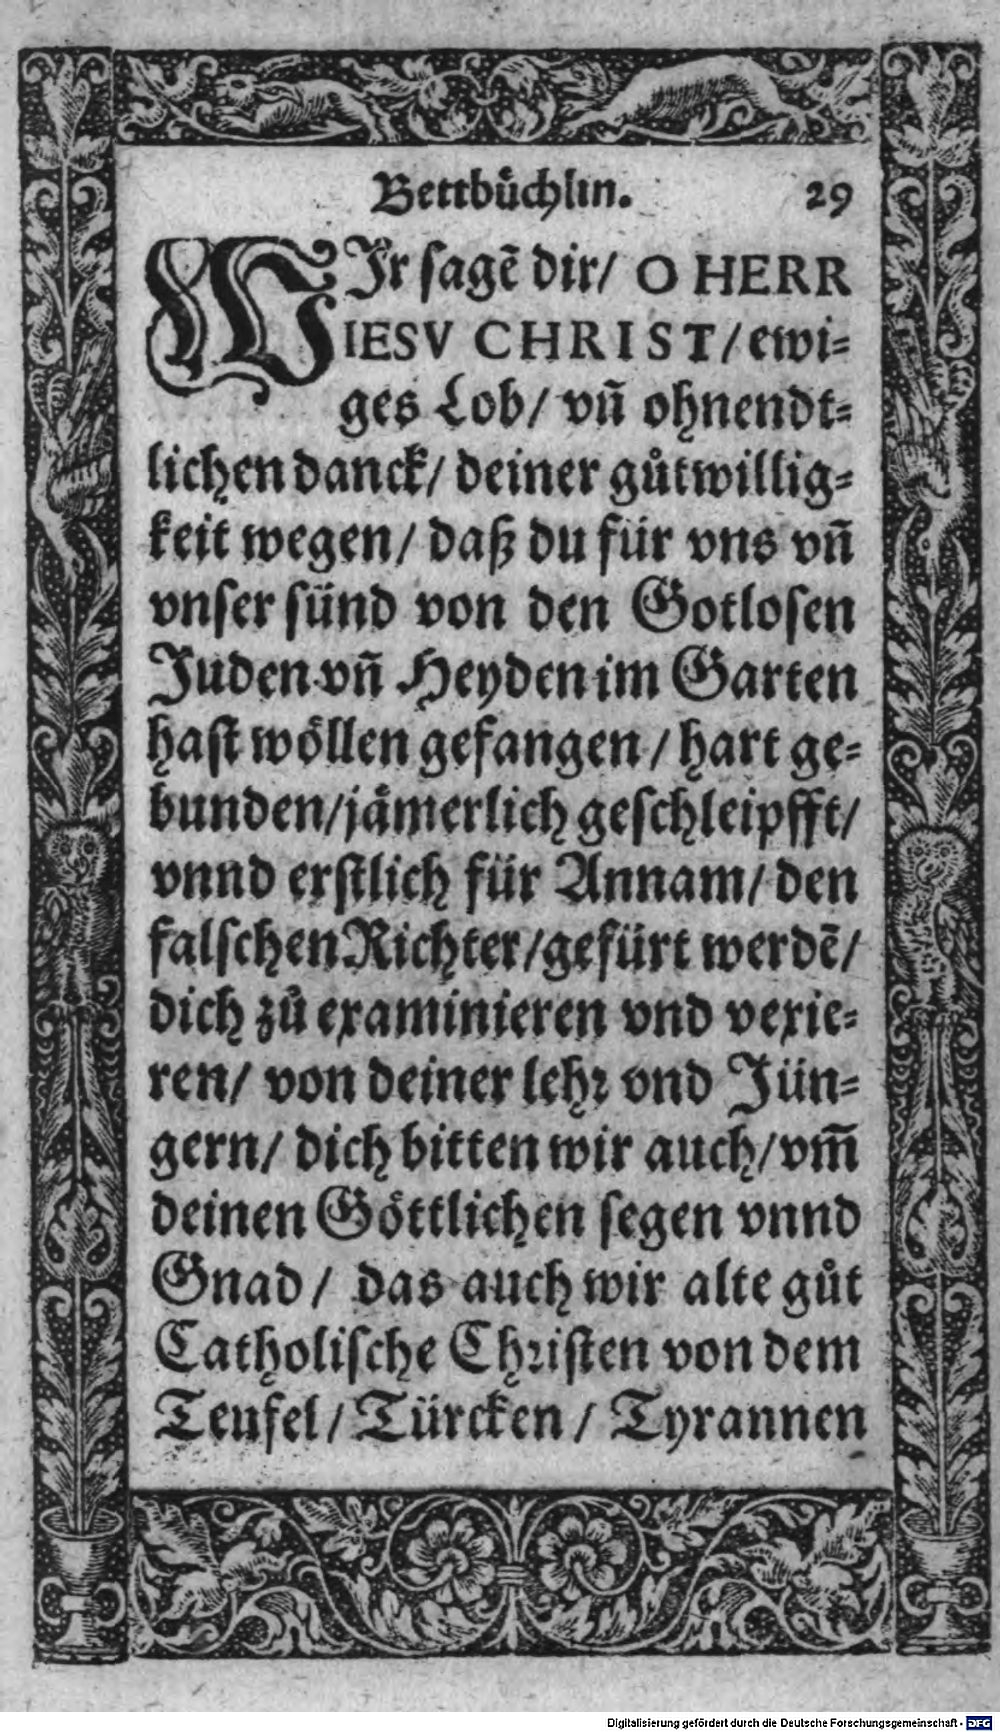 Bettbuͤchlin. 29
WIr sagẽ dir/ O HERR
IESV CHRIST/ ewi⸗
ges Lob/ vñ ohnendt⸗
lichen danck/ deiner guͦtwillig⸗
keit wegen/ daß du für vns vñ
vnser sünd von den Gotlosen
Juden vñ Heyden im Garten
hast woͤllen gefangen/ hart ge⸗
bunden/ jaͤmerlich geschleipfft/
vnnd erstlich für Annam/ den
falschen Richter/ gefürt werdẽ/
dich zuͦ examinieren vnd vexie⸗
ren/ von deiner lehr vnd Jün⸗
gern/ dich bitten wir auch/ vm̃
deinen Goͤttlichen segen vnnd
Gnad/ das auch wir alte guͦt
Catholische Christen von dem
Teufel/ Türcken/ Tyrannen
Digitalisierung gefördert durch die Deutsche Forschungsgemeinschaft - DFG